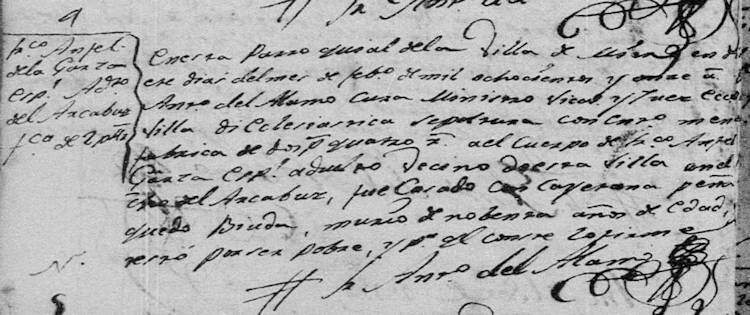 9
fr.co Anfel
de la Garza
esp.l Adto
del Arcabuz
f.ca de 2 p.s
en esta Parroquial de la Villa de Mier en di
ese dias del mes de feb.o de mil ochocientos y onse
Ant.o del Alamo Cura Ministro Vic.o y Juez Ecc.o
Villa di Eclesiastica sepultura con entro mena
fabrica de dos p.s quatro r.s a el Cuerpo de fr.co Anfel
Garza esp.l adulto Vecino de esta Villa en el
del Arcabuz, fue Casado con Cayetana peña
quedo Biuda, murio de nobenta años de edad,
testó por ser Pobre, y p.a q.e conste lo firme
N.
Fr. Ant.o del Alamo